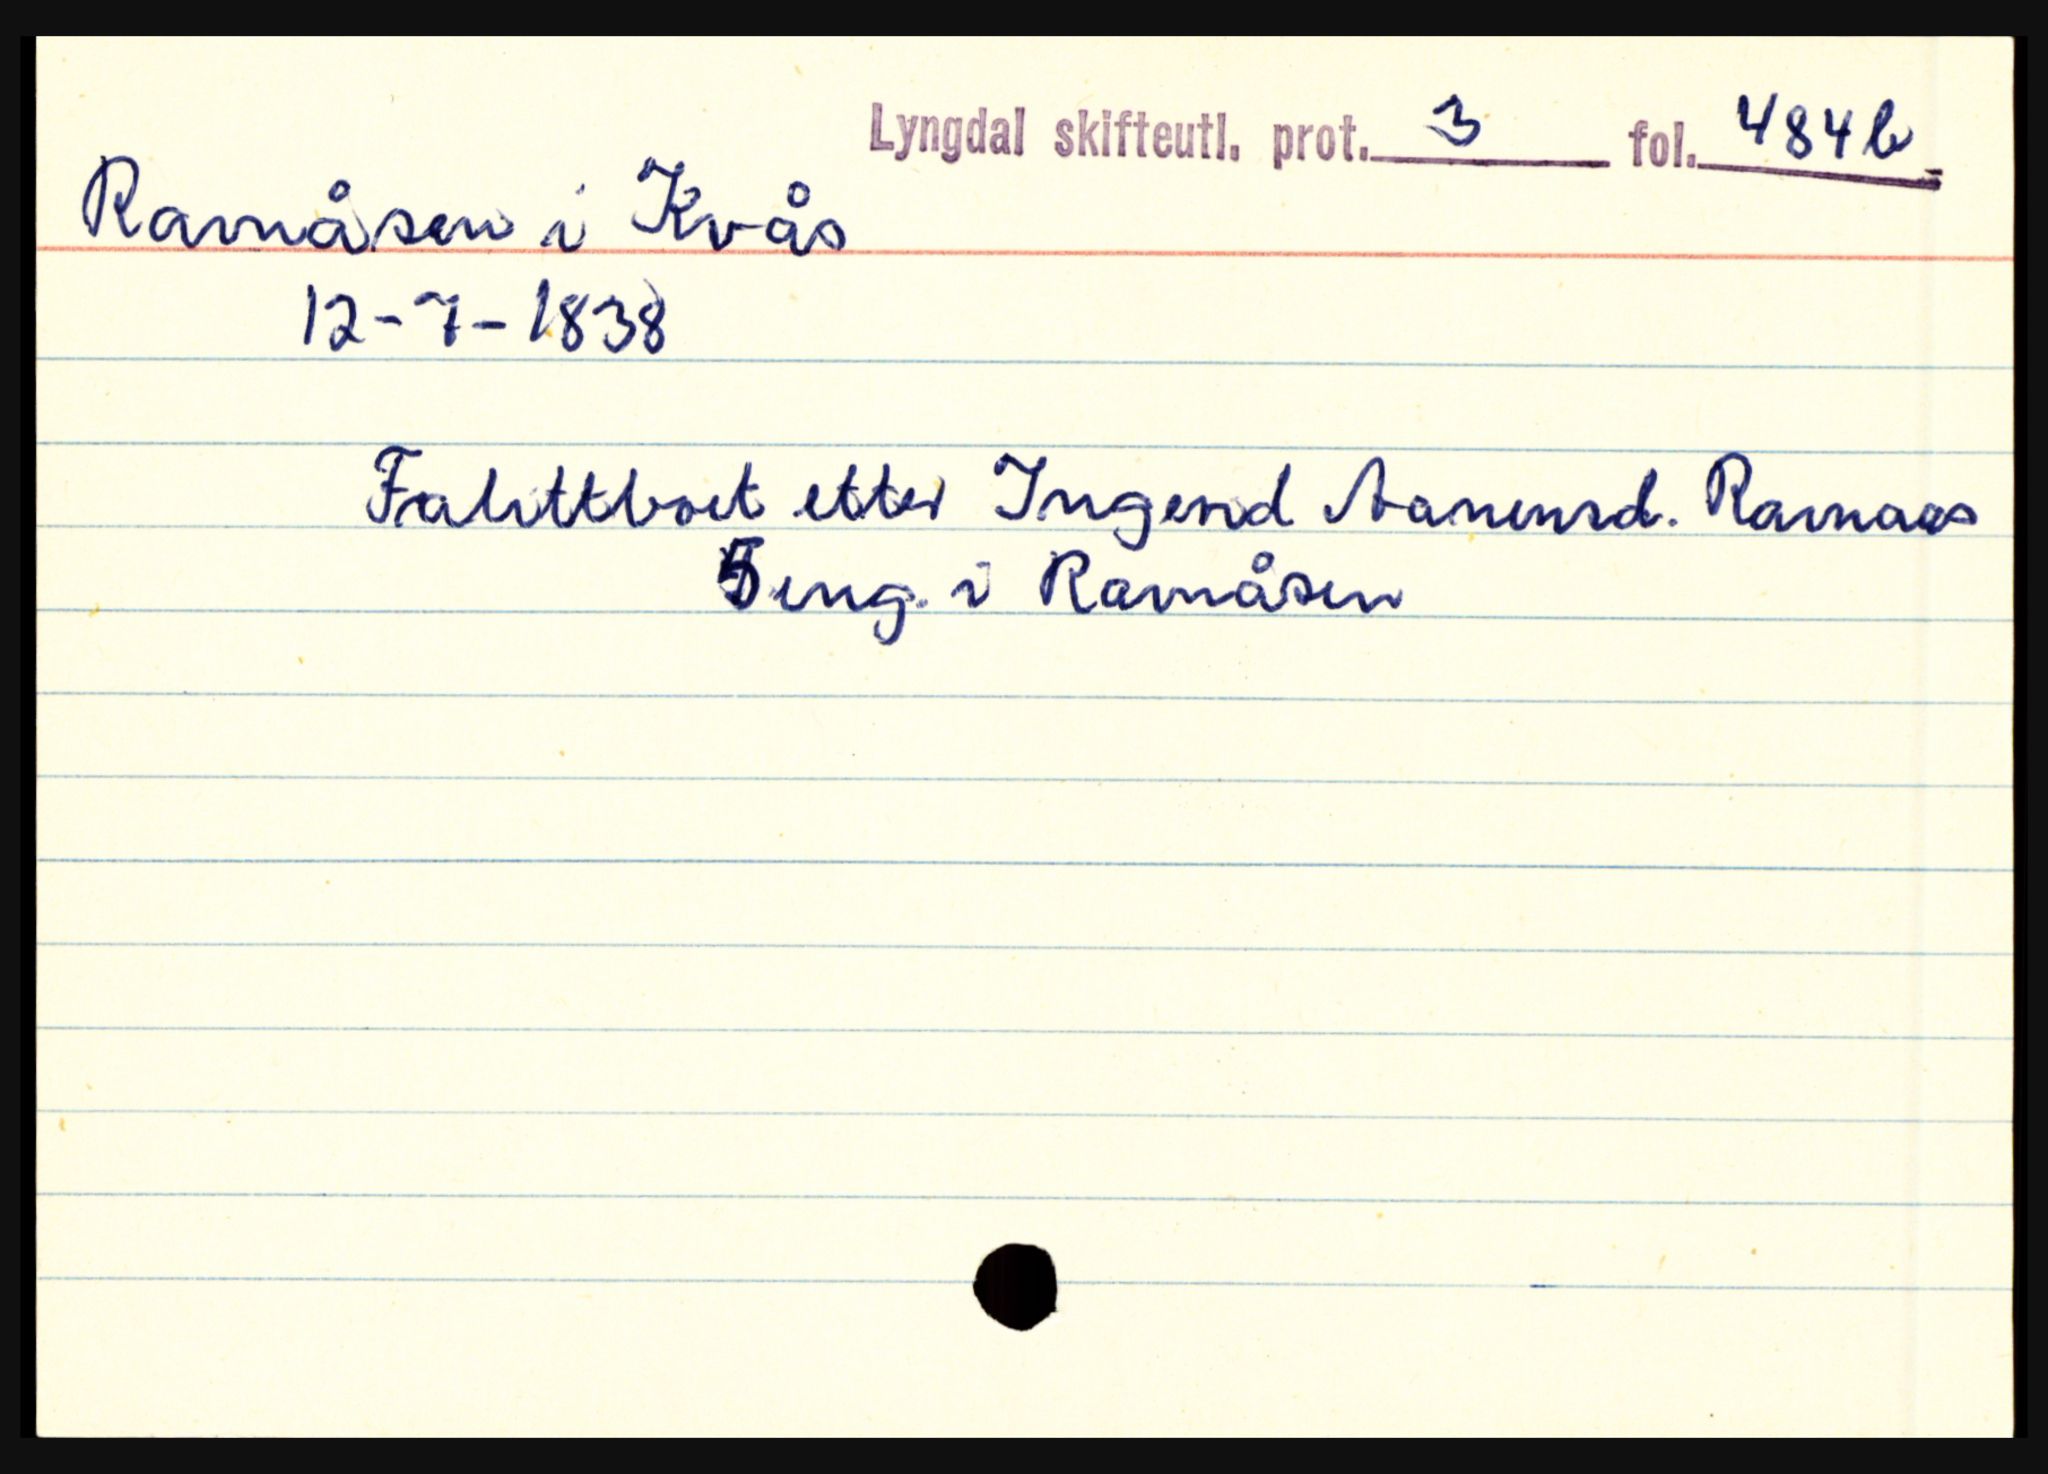 Lyngdal skifteutl. prot. 3 fol. 484b
Ravnåsen i Kvås
12-7-1838
Fallittboet etter Ingerid Aanensd. Ravnaas
5 eng. i Ravnåsen